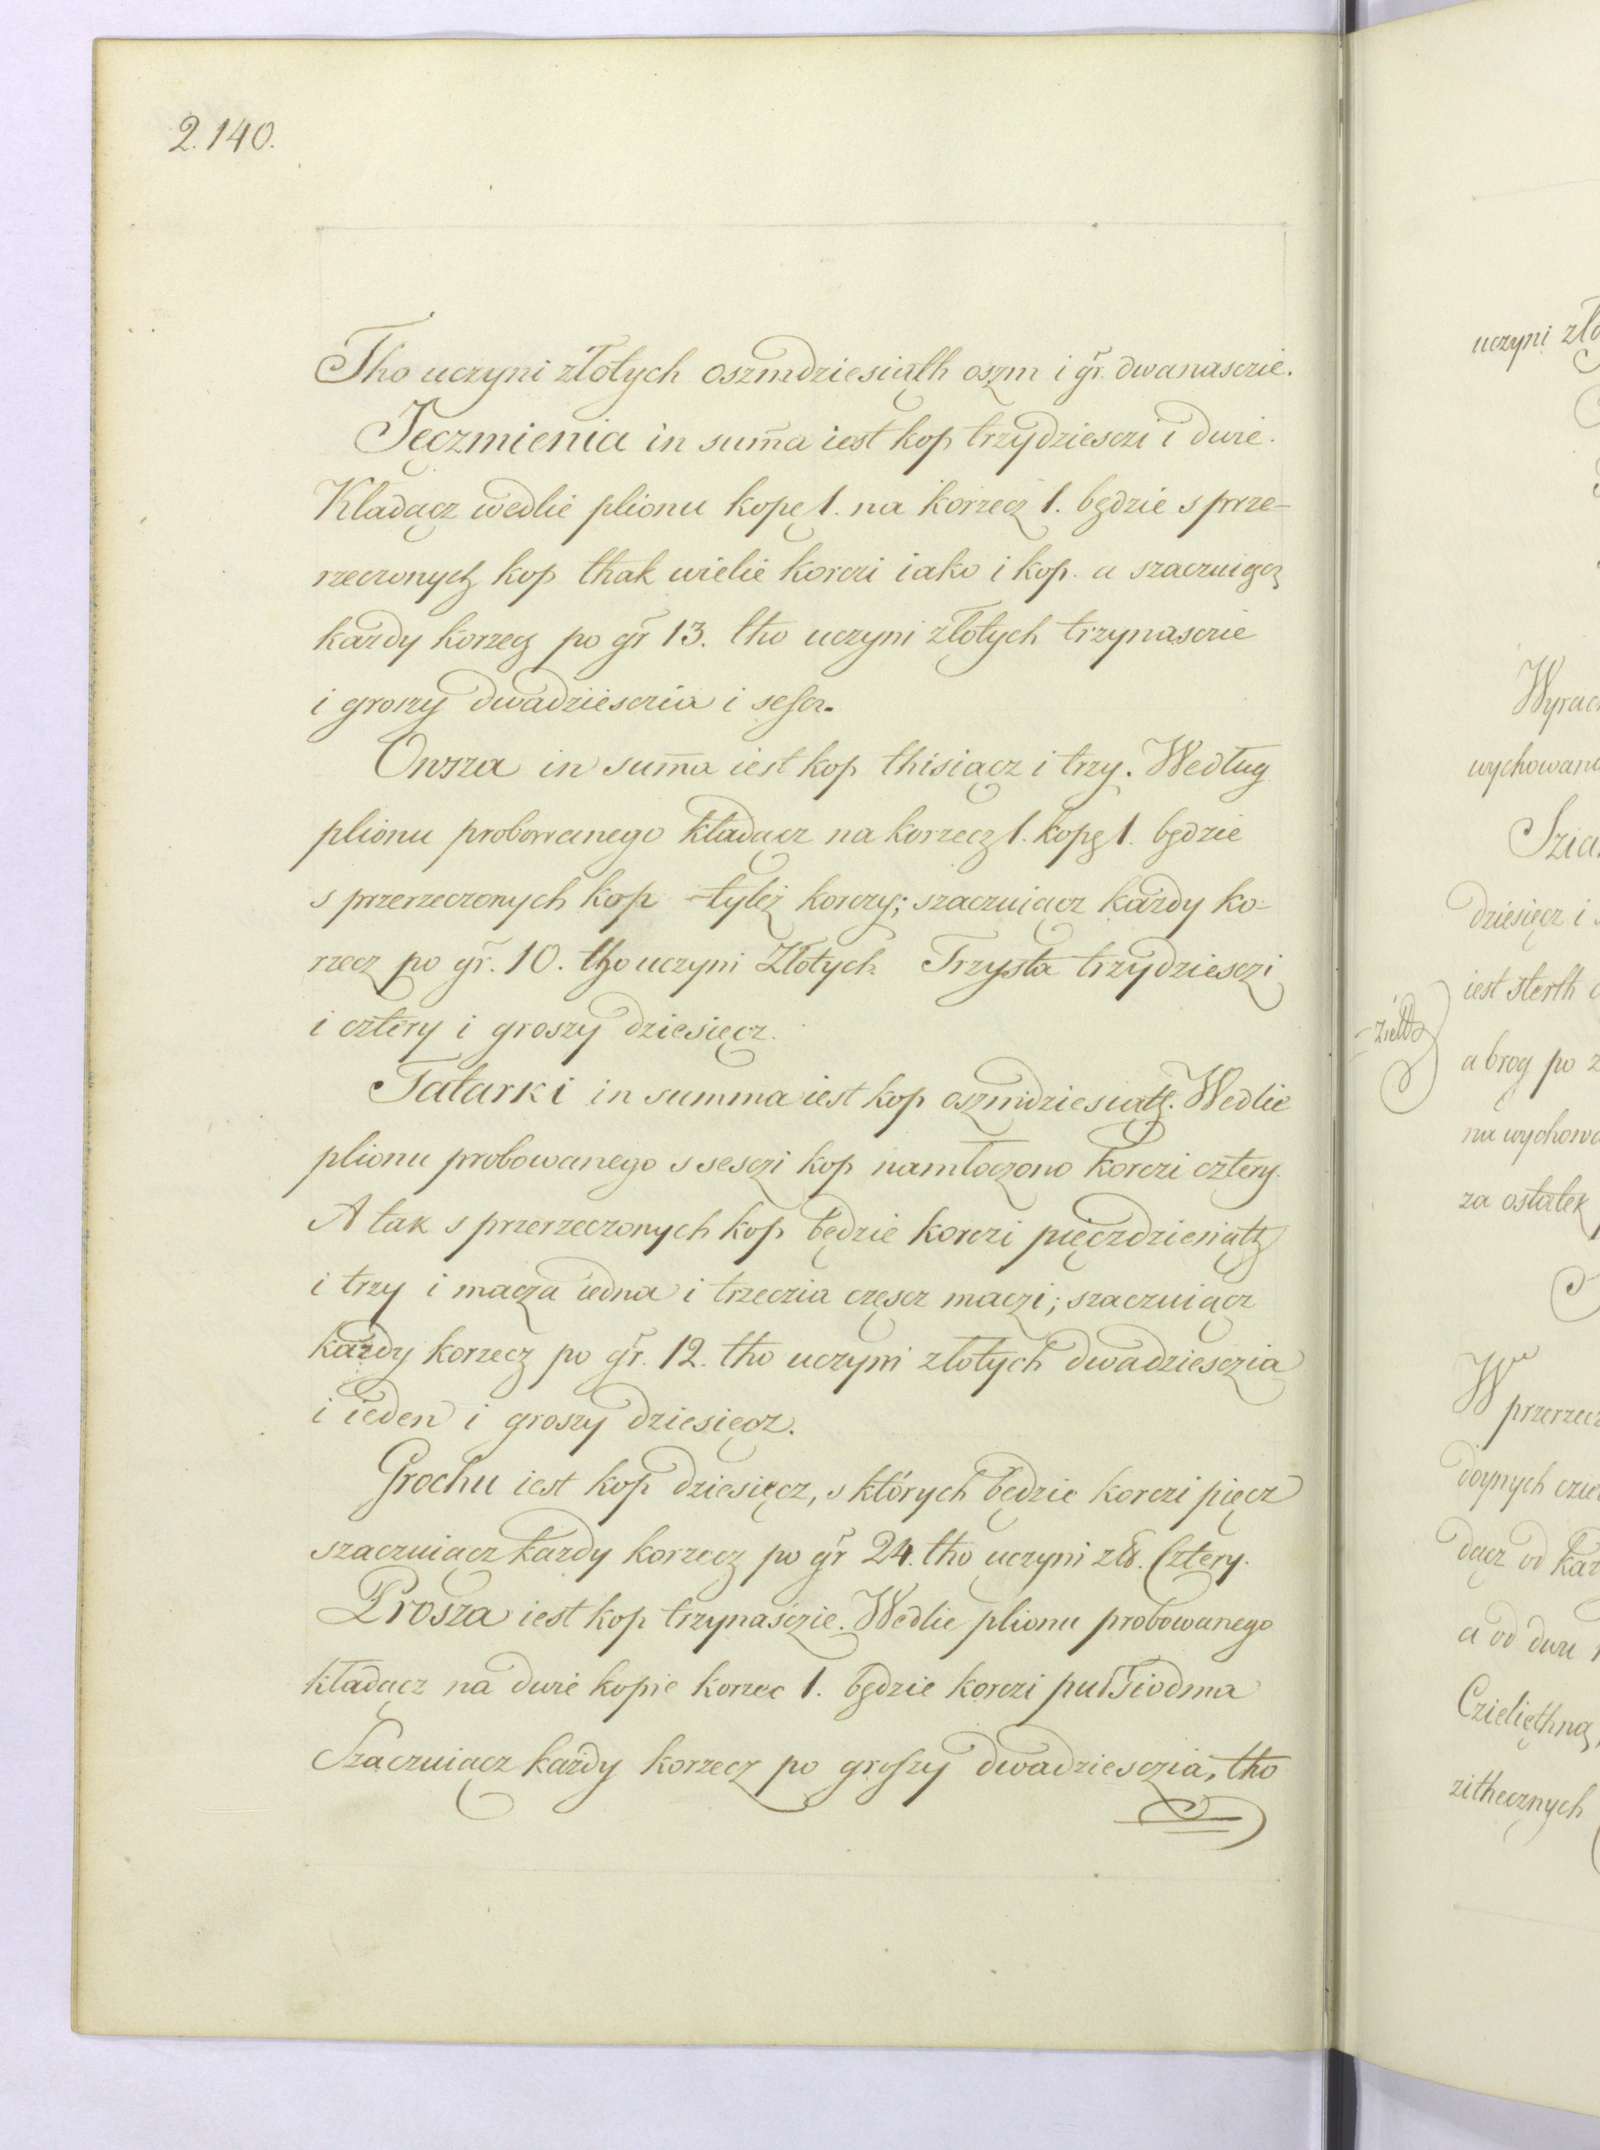 2.140.
Tho uczyni złotych oszmdziesiąth oszm i gr. dwanasczie.
Jęczmienia in suma iest kop trzydziesczi i dwie.
Kladącz wedlie plionu kopę 1. na korzecz 1. będzie s prze-
rzeczonych kop thak wielie korczi iako i kop. a szaczuiącz
każdy korzecz po gr 13. tho uczyni złotych trzynasczie
i groszy dwadziesczia i sescz.
Owsza in suma iest kop thisiącz i trzy. Według
plionu probowanego kładącz na korzecz 1. kopę 1. będzie
s przerzeczonych kop tyleż korczy; szaczuiącz każdy ko-
rzecz po gr. 10. tho uczyni Złotych Trzysta trzydziesczi
i cztery i groszy dziesięcz.
Tatarki in summa iest kop oszmdziesiąth. Wedlie
plionu probowanego s sesczi kop namłoczono korczi cztery.
A tak s przerzeczonych kop będzie korczi pięczdziesiąth
i trzy i macza iedna i trzeczia częscz maczi; szaczuiącz
każdy korzecz po gr. 12. tho uczyni złotych dwadziesczia
i ieden i groszy dziesięcz.
Grochu iest kop dziesięcz, s których będzie korczi pięcz
szaczuiącz każdy korzecz po gr 24. tho uczyni zło. Cztery.
Prosza iest kop trzynasczie. Wedlie plionu probowanego
kładącz na dwie kopie korzec 1. będzie korczi puł Siodma
Szaczuiącz każdy korzecz po groszy dwadziesczia, tho
uczyni
Wyrac
wychowan
dziesięcz i
iest sterth
a brog po
na wychow
za ostatek
W przerzecz
doynych
dacz od
a od dwu
Czieliethną
zithecznych